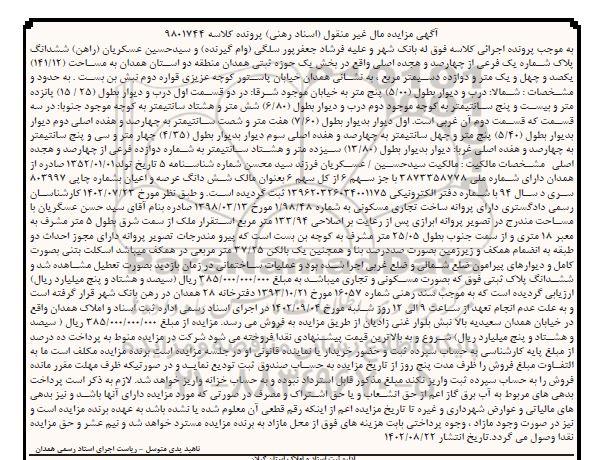 آگهی مزایده مال غیر منقول (اسناد رهنی) پرونده کلاسه ۹۸۰۱۷۴۴
به موجب پرونده اجرائی کلاسه فوق له بانک شهر و علیه فرشاد جعفرپور سلگی (وام گیرنده) و سیدحسین عسکریان (راهن) ششدانگ
پلاک شماره یک فرعی از چهارصد و هجده اصلی واقع در بخش یک حوزه ثبتی همدان منطقه دو استان همدان به مساحت (۱۴۱/۱۲)
یکصد و چهل و یک متر و دوازده دسیمتر مربع) به نشانی همدان خیابان پاستور کوچه عزیزی قواره دوم نبش بن بست . به حدود و
مشخصات : شمالا: درب و دیوار بطول (۵/۰۰) پنج متر به خیابان موجود شرقا: در دو قسمت اول درب و دیوار بطول (۲۵ / ۱۵) پانزده
متر و بیست و پنج سانتیمتر به کوچه موجود دوم درب و دیوار بطول (۶/۸۰) شش متر و هشتاد سانتیمتر به کوچه موجود جنوبا: در سه
قسمت که قسمت دوم آن غربی است. اول دیوار بدیوار بطول (۷/۶۰) هفت متر و شصت سانتیمتر به چهارصد و هفده اصلی دوم دیوار
بدیوار بطول (۵/۴۰) پنج متر و چهل سانتیمتر به چهارصد و هفده اصلی سوم دیوار بدیوار بطول (۴/۳۵) چهار متر و سی و پنج سانتیمتر
به چهارصد و هفده اصلی غربا: دیوار بدیوار بطول (۱۳/۸۰) سیزده متر و هشتاد سانتیمتر به شماره دوازده فرعی از چهارصد و هجده
اصلی مشخصات مالکیت : مالکیت سیدحسین / عسکریان فرزند سید محسن شماره شناسنامه ۵ تاریخ تولد۱۳۵۲/۰۱/۰۱ صادره از
همدان دارای شماره ملی ۳۸۷۳۳۵۸۷۷۸ با جز سهم ۶ از کل سهم ۶ بعنوان مالک شش دانگ عرصه و اعیان بشماره چاپی ۸۰۳۹۹۷
سری د سال ۹۴ با شماره دفتر الکترونیکی ۱۳۹۶۲۰۳۲۶۰۳۴۰۰۱۱۷۵ ثبت گردیده است. و طبق نظر مورخ ۱۴۰۲/۰۷/۲۳ کارشناسان
رسمی دادگستری دارای پروانه ساخت تجاری مسکونی به شماره ۱/۹۸/۴۸ مورخ ۱۳۹۸/۰۳/۱۳ صادره بنام آقای سید حسن عسگریان با
مساحت مندرج در تصویر پروانه ابرازی پس از رعایت بر اصلاحی ۱۳۳/۹۴ متر مربع استقرار ملک از سمت شرق بطول ۵ متر مشرف به
معبر ۱۸ متری و از سمت جنوب بطول ۲۵/۰۵ متر مشرف به کوچه بن بست است که پیرو مندرجات تصویر پروانه دارای مجوز احداث دو
طبقه به انضمام همکف و زیرزمین بصورت صددرصد بنا و همچنین یک بالکن ۳۷/۲۵ متر مربعی در همکف میباشد اسکلت بتنی بصورت
کامل و دیوارهای پیرامون ضلع شمالی و ضلع غربی اجرا شده بود و عملیات ساختمانی در زمان بازدید بصورت تعطیل مشاهده شد و
ششدانگ پلاک ثبتی فوق که بصورت مسکونی و تجاری میباشد به مبلغ ۳۸۵/۰۰۰/۰۰۰/۰۰۰ ریال (سیصد و هشتاد و پنج میلیارد ریال)
ارزیابی گردیده است که به موجب سند رهنی شماره ۱۶۰۵۷ مورخ ۱۳۹۳/۱۰/۲۱ دفترخانه ۲۸ همدان در رهن بانک شهر قرار گرفته است
و به علت عدم انجام تعهد از ساعت ۹ الی ۱۲ روز شنبه مورخ ۱۴۰۲/۰۹/۰۴ در اجرای اسناد رسمی اداره ثبت اسناد و املاک همدان واقع
در خیابان همدان سعیدیه بالا نبش بلوار غنی زادیان از طریق مزایده به فروش می رسد. مزایده از مبلغ ۳۸۵/۰۰۰/۰۰۰/۰۰۰ ریال ( سیصد
و هشتاد و پنج میلیارد ریال) شروع و به بالاترین قیمت پیشنهادی نقدا فروخته می شود شرکت در مزایده منوط به پرداخت ده درصد
از مبلغ پایه کارشناسی به حساب سپرده ثبت و حضور خریدار یا نماینده قانونی او در جلسه مزایده است برنده مزایده مکلف است ما به
التفاوت مبلغ فروش را ظرف مدت پنج روز از تاریخ مزایده به حساب صندوق ثبت تودیع نمایـد و در صورتیکه ظرف مهلت مقرر مانده
فروش را به حساب سپرده ثبت واریز نکند مبلغ مذکور قابل استرداد نبوده و به حساب خزانه واریز خواهد شد. لازم به ذکر است پرداخت
بدهی های مربوط به آب برق گاز اعم از حق انشعاب و یا حق اشتراک و مصرف در صورتی که مورد مزایده دارای آنها باشد و نیز بدهی
های مالیاتی و عوارض شهرداری و غیره تا تاریخ مزایده اعم از اینکه رقم قطعی آن معلوم شده یا نشده باشد به عهده برنده مزایده است و
نیز در صورت وجود مازاد ، وجوه پرداختی بابت هزینه های فوق از محل مازاد به برنده مزایده مسترد خواهد شد و نیم عشر و حق مزایده
نقدا وصول می گردد.تاریخ انتشار ۱۴۰۲/۰۸/۲۲
ناهید یدی متوسل - ریاست اجرای اسناد رسمی همدان